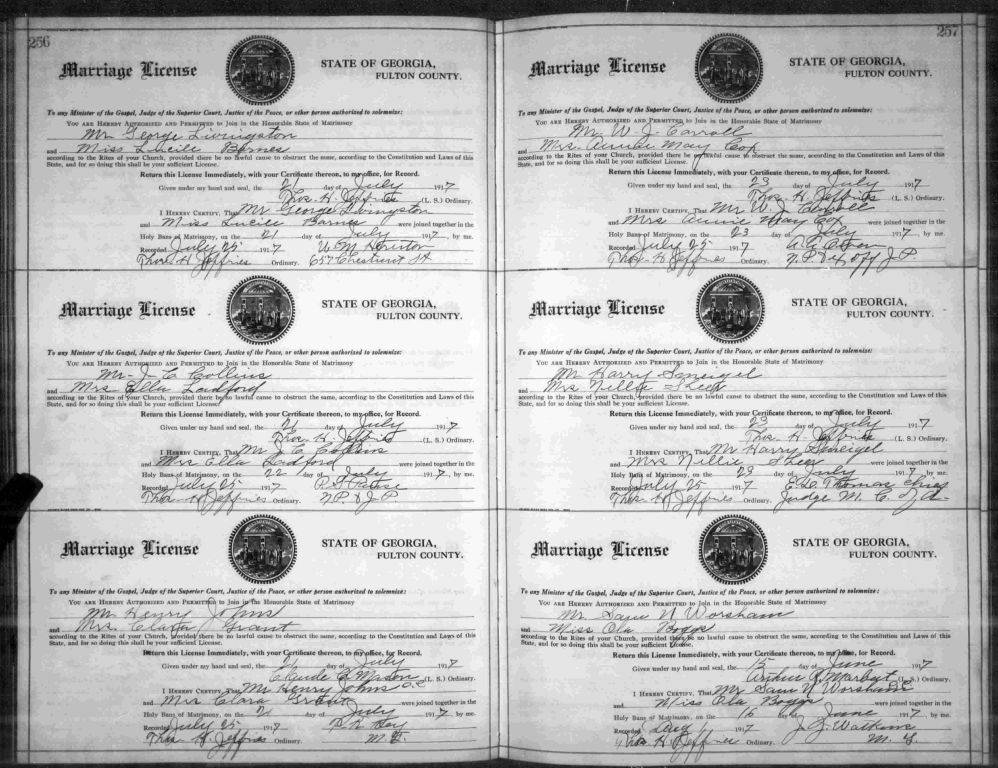 256
Marriage License
STATE OF GEORGIA,
FULTON COUNTY.
To any Minister of the Gospel, Judge of the Superior Court, Justice of the Peace, or other person authorized to solemnize:
YOU ARE HEREBY AUTHORIZED AND PERMITTED to Join in the Honorable State of Matrimony
Mr George Livingston
and Miss Lucill Barnes
according to the Rites of your Church, provided there be no lawful cause to obstruct the same, according to the Constitution and Laws of this
State, and for so doing this shall be your sufficient License.
Return this License Immediately, with your Certificate thereon, to my office, for Record.
Given under my hand and seal, the 21 day of July 1917
Thos. H. Jeffries (L. S.) Ordinary.
I HEREBY CERTIFY, That Mr George Livingston
and Miss Lucill Barnes were joined together in the
Holy Bans of Matrimony, on the 21 day of July 1917, by me.
Recorded July 25 1917 W. M.
Thos H Jeffries Ordinary. 657 Chestnut St
Marriage License
STATE OF GEORGIA,
FULTON COUNTY.
To any Minister of the Gospel, Judge of the Superior Court, Justice of the Peace, or other person authorized to solemnize:
YOU ARE HEREBY AUTHORIZED AND PERMITTED to Join in the Honorable State of Matrimony
Mr. J. C. Collins
and Mrs. Ella Ladford
according to the Rites of your Church, provided there be no lawful cause to obstruct the same, according to the Constitution and Laws of this
State, and for so doing this shall be your sufficient License.
Return this License Immediately, with your Certificate thereon, to my office, for Record.
Given under my hand and seal, the 21 day of July 1917
Thos. H. Jeffries (L. S.) Ordinary.
I HEREBY CERTIFY, That Mr J. C. Collins
and Mrs Ella Ladford were joined together in the
Holy Bans of Matrimony, on the 22 day of July 1917, by me.
Recorded July 25 1917
Thos H Jeffries Ordinary. N.P. & J P
Marriage License
STATE OF GEORGIA,
FULTON COUNTY.
To any Minister of the Gospel, Judge of the Superior Court, Justice of the Peace, or other person authorized to solemnize:
YOU ARE HEREBY AUTHORIZED AND PERMITTED to Join in the Honorable State of Matrimony
Mr Henry Johns
and Mrs. Clara Grant
according to the Rites of your Church, provided there be no lawful cause to obstruct the same, according to the Constitution and Laws of this
State, and for so doing this shall be your sufficient License.
Return this License Immediately, with your Certificate thereon, to my office, for Record.
Given under my hand and seal, the 21 day of July 1917
Claude C. Mason (L. S.) Ordinary.
I HEREBY CERTIFY, That Mr Henry Johns
and Mrs Clara Grant were joined together in the
Holy Bans of Matrimony, on the 21 day of July 1917, by me.
Recorded July 25 1917
Thos H Jeffries Ordinary. M. G.
257
Marriage License
STATE OF GEORGIA,
FULTON COUNTY.
To any Minister of the Gospel, Judge of the Superior Court, Justice of the Peace, or other person authorized to solemnize:
YOU ARE HEREBY AUTHORIZED AND PERMITTED to Join in the Honorable State of Matrimony
Mr. W. J. Carroll
and Mrs. Annie May Cox
according to the Rites of your Church, provided there be no lawful cause to obstruct the same, according to the Constitution and Laws of this
State, and for so doing this shall be your sufficient License.
Return this License Immediately, with your Certificate thereon, to my office, for Record.
Given under my hand and seal, the 23 day of July 1917
Thos. H. Jeffries (L. S.) Ordinary.
I HEREBY CERTIFY, That Mr W. J. Carroll
and Mrs Annie May Cox were joined together in the
Holy Bans of Matrimony, on the 23 day of July 1917, by me.
Recorded July 25 1917
Thos. H Jeffries Ordinary. N. P. & Ex off J P
Marriage License
STATE OF GEORGIA,
FULTON COUNTY.
To any Minister of the Gospel, Judge of the Superior Court, Justice of the Peace, or other person authorized to solemnize:
YOU ARE HEREBY AUTHORIZED AND PERMITTED to Join in the Honorable State of Matrimony
Mr Harry Smeigel
and Mrs Nillie Sheer
according to the Rites of your Church, provided there be no lawful cause to obstruct the same, according to the Constitution and Laws of this
State, and for so doing this shall be your sufficient License.
Return this License Immediately, with your Certificate thereon, to my office, for Record.
Given under my hand and seal, the 23 day of July 1917
Thos. H. Jeffries (L. S.) Ordinary.
I HEREBY CERTIFY, That Mr Harry Smeigel
and Mrs Nillie Sheer were joined together in the
Holy Bans of Matrimony, on the 23 day of July 1917, by me.
Recorded July 25 1917 Thomas
Thos. H Jeffries Ordinary. Judge M. C. of A.
Marriage License
STATE OF GEORGIA,
FULTON COUNTY.
To any Minister of the Gospel, Judge of the Superior Court, Justice of the Peace, or other person authorized to solemnize:
YOU ARE HEREBY AUTHORIZED AND PERMITTED to Join in the Honorable State of Matrimony
Mr. Sam N Worsham
and Miss Ola Boggs
according to the Rites of your Church, provided there be no lawful cause to obstruct the same, according to the Constitution and Laws of this
State, and for so doing this shall be your sufficient License.
Return this License Immediately, with your Certificate thereon, to my office, for Record.
Given under my hand and seal, the 15 day of June 1917
Arthur R. Marbut (L. S.) Ordinary.
I HEREBY CERTIFY, That Mr Sam N Worsham
and Miss Ola Boggs were joined together in the
Holy Bans of Matrimony, on the 16 day of June 1917, by me.
Recorded 1917 Watkins
Thos H Jeffries Ordinary. M. G.